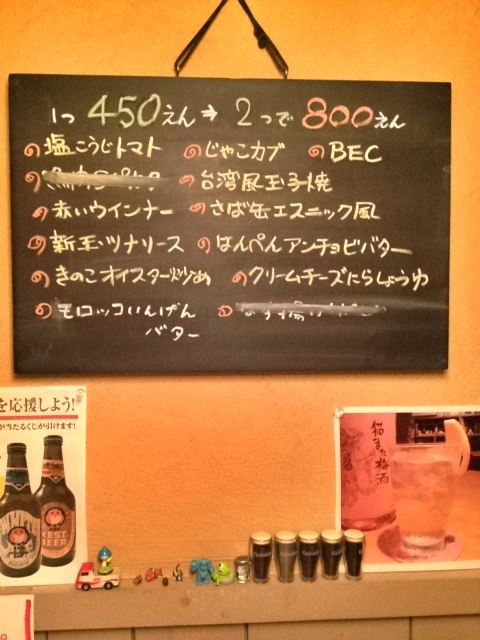 1つ 450えん ⇒ 2つで 800えん
塩こうじトマト じゃこカブ BEC
台湾風玉子焼
赤いウインナー さば缶エスニック風
新玉ツナソース はんぺんアンチョビバター
きのこオイスター炒め クリームチーズにらしょうゆ
モロッコいんげん
バター
を応援しよう!
が当たるくじが引けます!
NEST
BEER
猫また梅酒